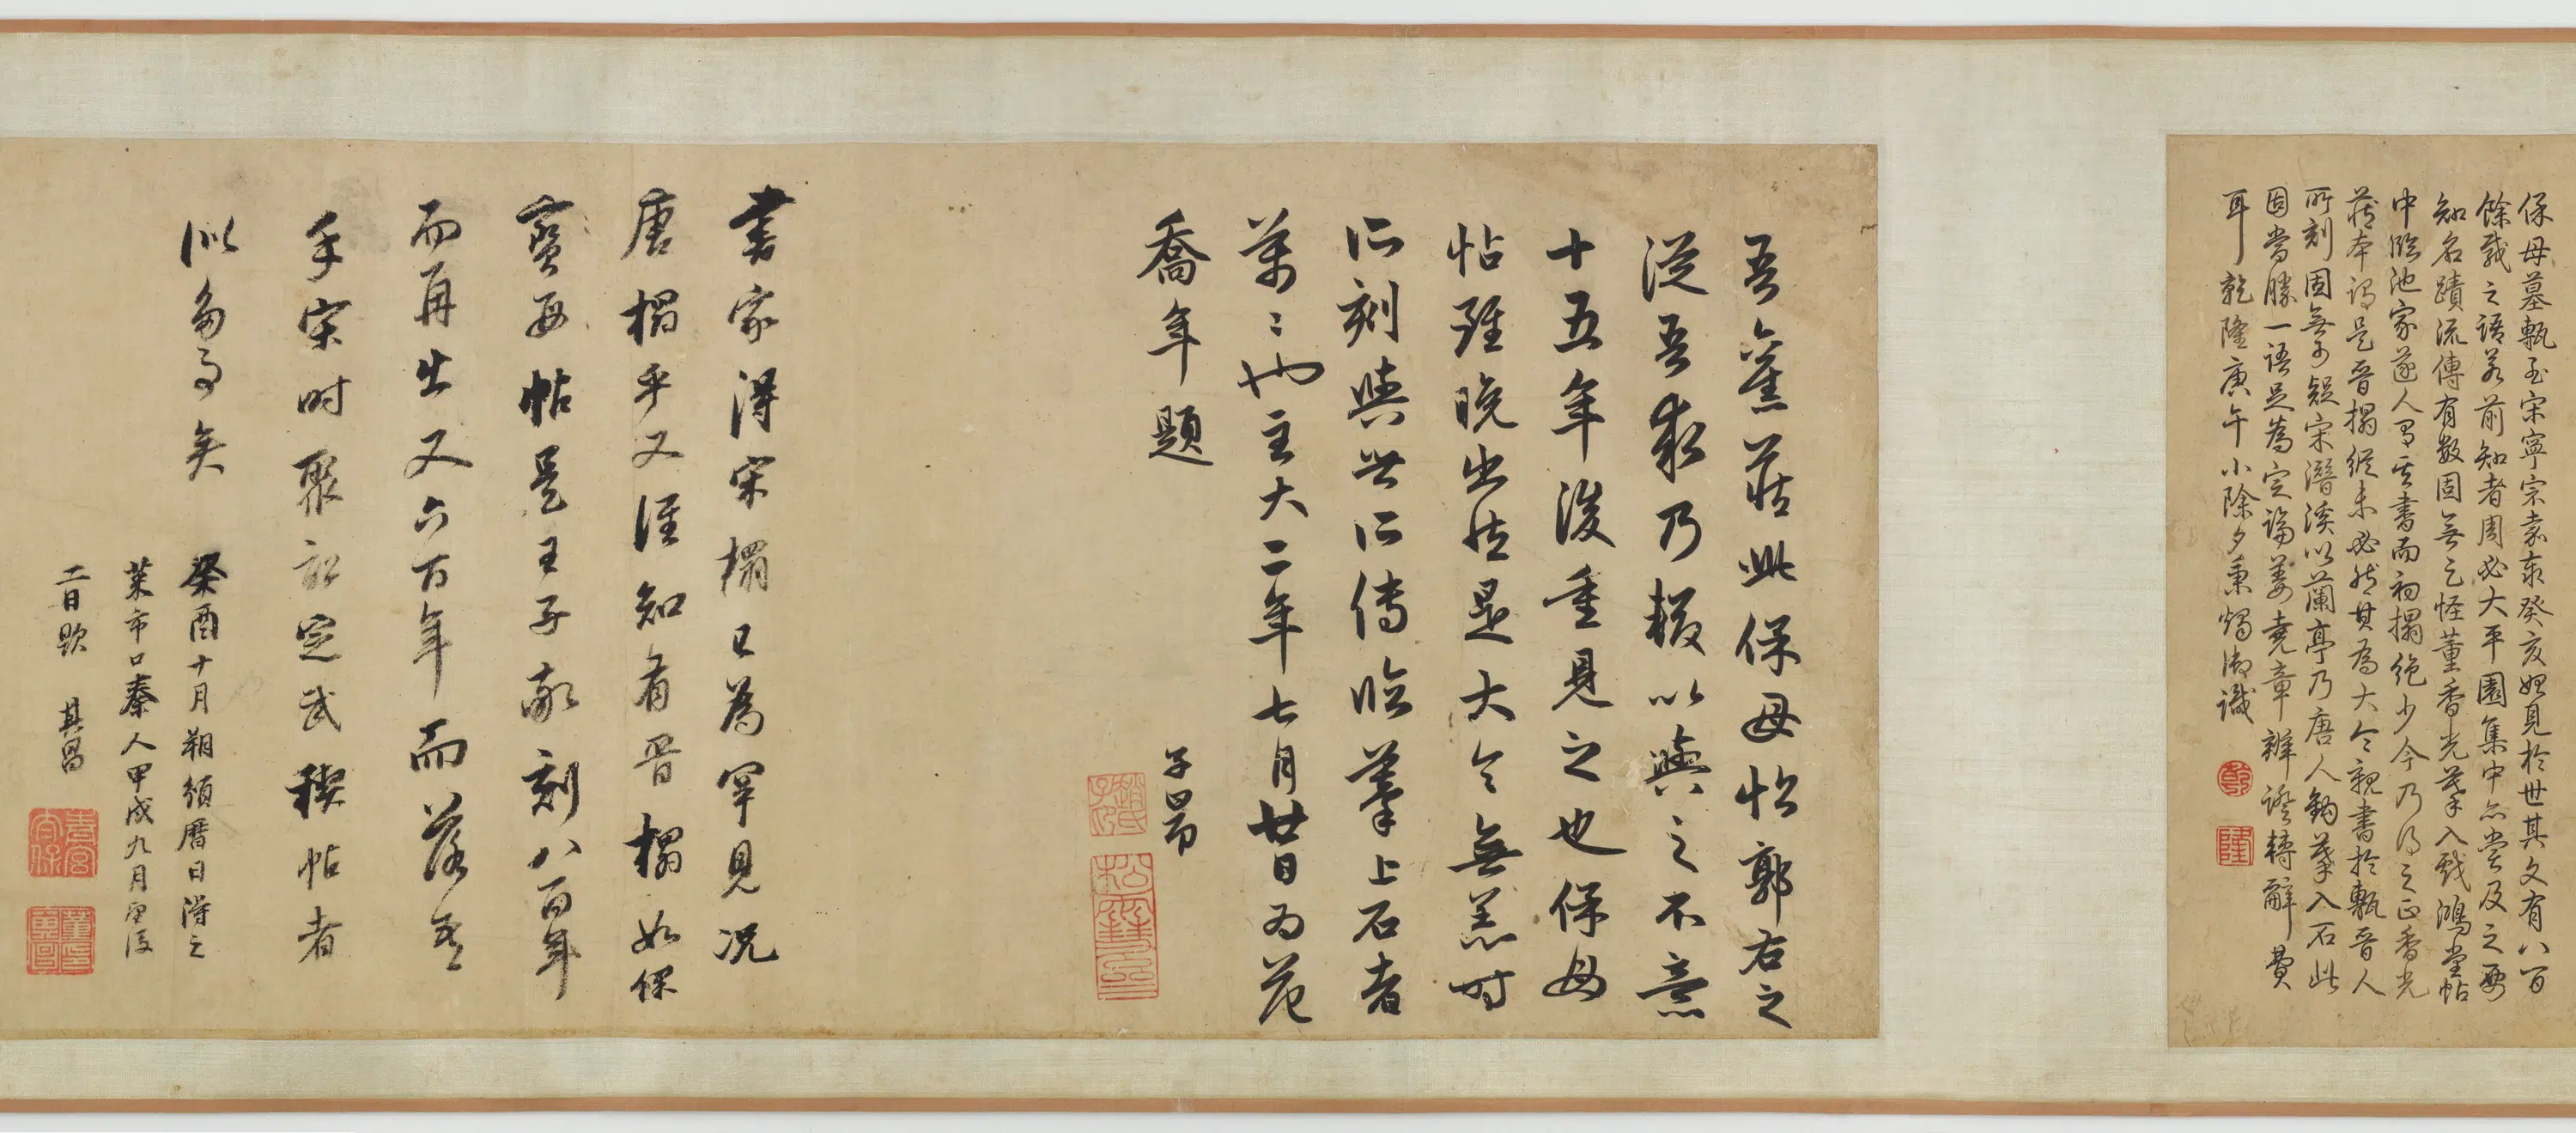 保母墓甎至宋寧宗嘉泰癸亥始見於世其文有八百
餘載之語若前知者周必大平園集中亦嘗及之要
知名蹟流傳有數固無乞怪董香光摹入戲鴻堂帖
中臨池家遂人習其書而初搨絕少今乃得之正香光
蔵本謂是晉搨縱未必然其為大令親書於甎晉人
所刻固無可疑宋潛溪以蘭亭乃唐人鉤摹入石此
固當勝一語足為定論姜堯章辨證轉辭費
耳乾隆庚午小除夕秉燭御識
乾
隆
吾舊藏此保母帖郭右之
從吾求乃輟以與之不意
十五年後重見之也保母
帖雖晚出然是大令無恙時
所刻與世所傳臨摹上石者
萬〻也至大二年七月廿日為范
喬年題
子昂
趙子昂
松雪齋
書家得宋搨已為罕見況
唐搨乎又誰知有晉搨如保
寶母帖是王子敬刻八百年
而再出又六百年而落吾
手宋時聚訟定武稧帖者
似多事矣
癸酉十月朔頒曆日得之
菜市口秦人甲戌九月望後
二日題 其昌
董其昌印